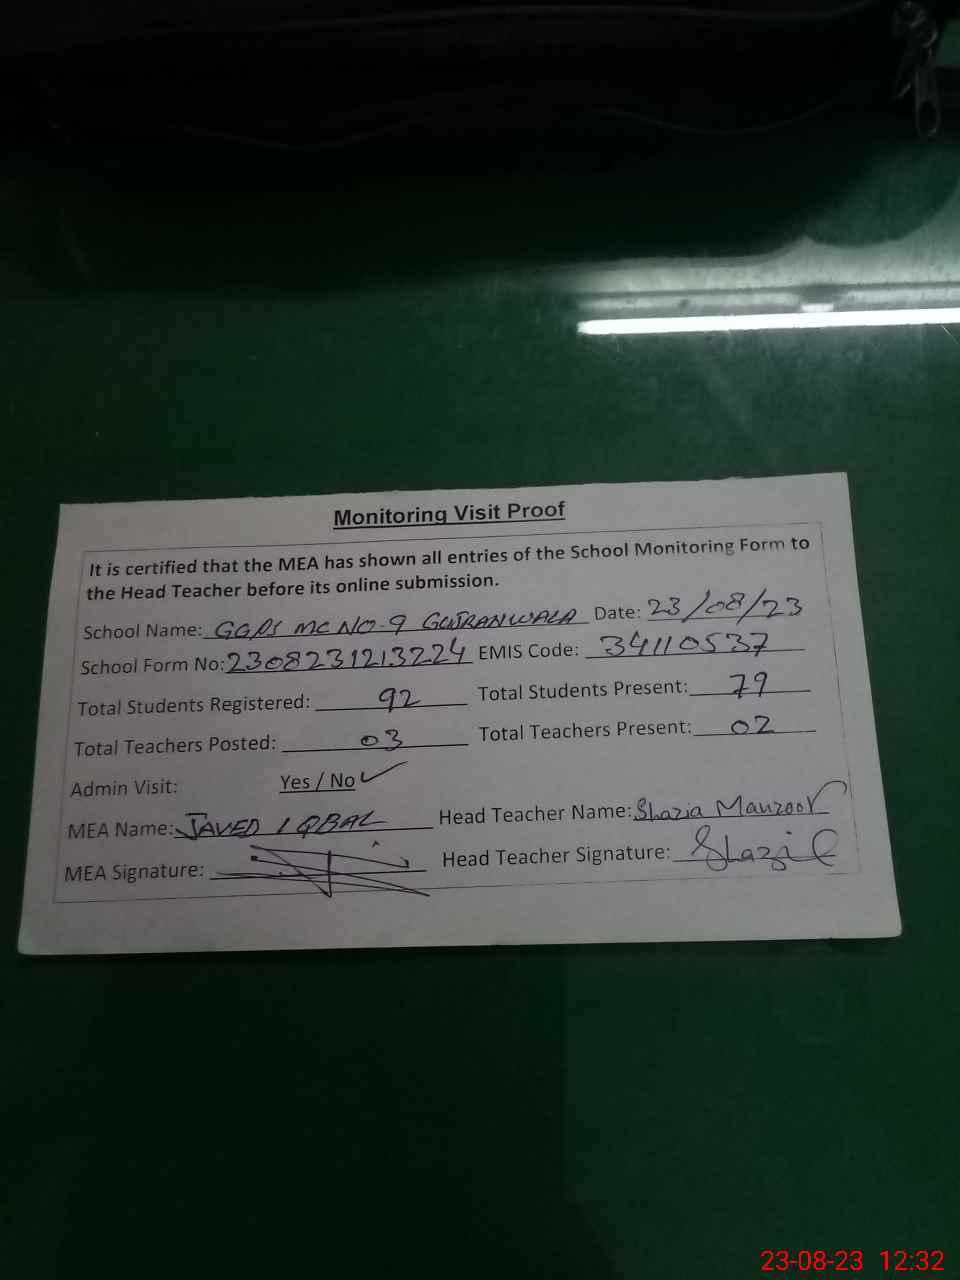 Monitoring Visit Proof
It is certified that the MEA has shown all entries of the School Monitoring Form to
the Head Teacher before its online submission.
School Name: GGPS MC NO-9 GUJRANWALA Date: 23/08/23
School Form No: 2308231213224 EMIS Code: 34110537
Total Students Registered: 92 Total Students Present: 79
Total Teachers Posted: 03 Total Teachers Present: 02
Admin Visit: Yes / No ✓
MEA Name: JAVED IQBAL Head Teacher Name: Shazia Manzoor
MEA Signature: Head Teacher Signature: Shazia
23-08-23 12:32